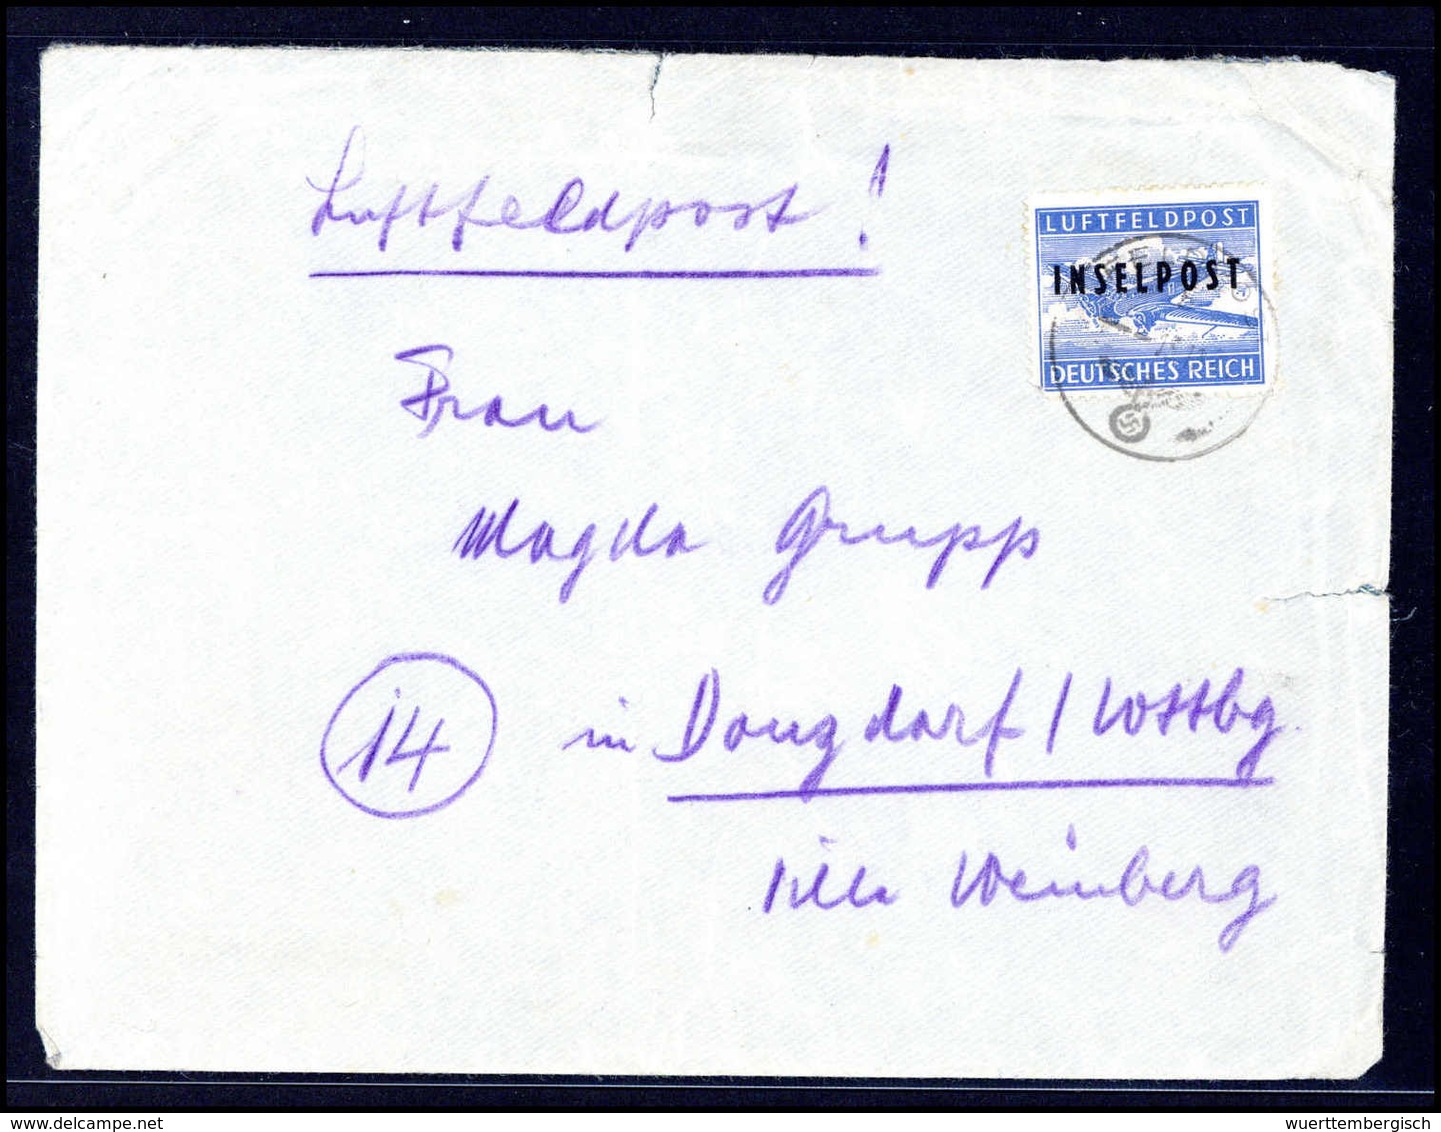 Luftfeldpost!
LUFTFELDPOST
INSELPOST
DEUTSCHES REICH
Frau
Magda Grupp
14 in Donzdorf / Wttbg.
Villa Weinberg
wuerttembergisch